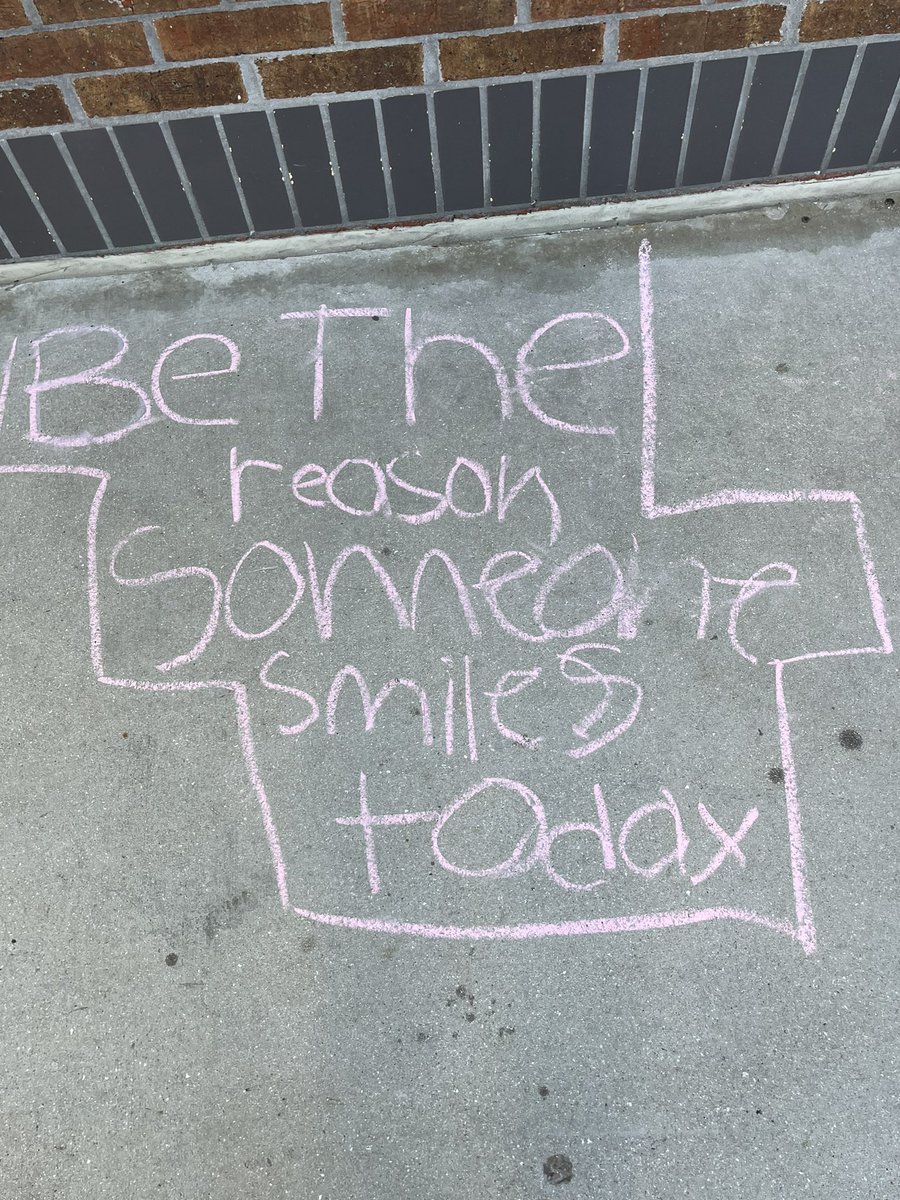 Be The
reason
Someone
smiles
today